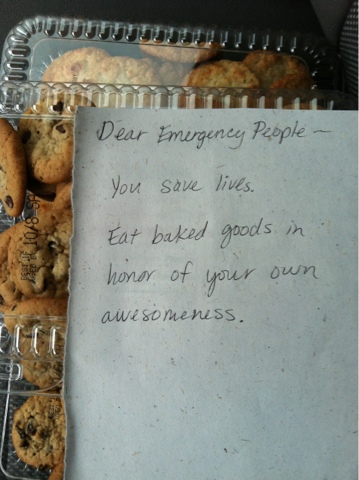 Dear Emergency People —
You save lives.
Eat baked goods in
honor of your own
awesomeness.